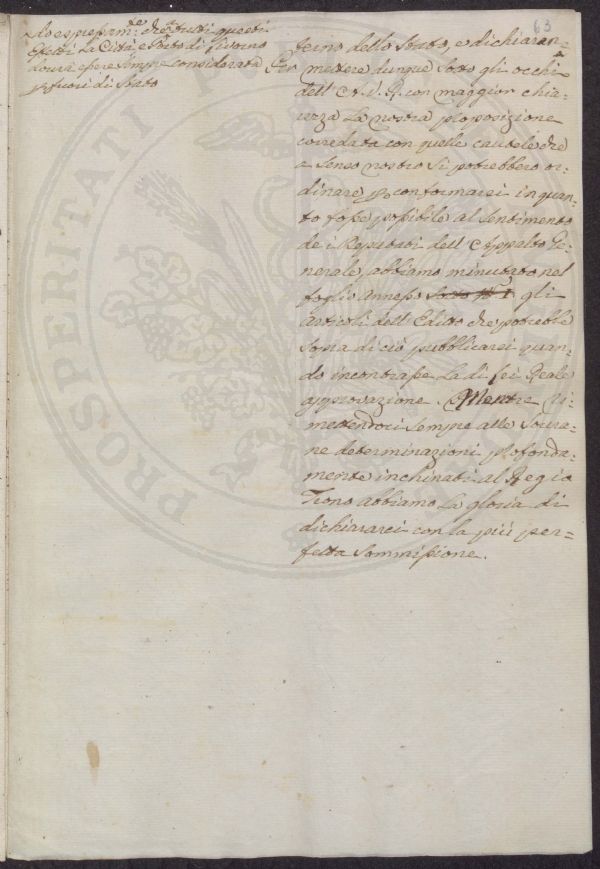 63
do espressam:te che a tutti questi
effetti La Città, e Porto di Livorno
dovrà essere sempre considerata
p fuori di Stato
terno dello Stato, e dichiaran=
Per mettere dunque sotto gli occhi
dell' A. V. R. con maggior chia=
rezza La nostra proposizione
corredata con quelle cautele che
a senso nostro si potrebbero or=
dinare p conformarci in quan=
to fosse possibile al sentimento
de i Reputati dell' Appalto Ge=
nerale, abbiamo minutato nel
foglio annesso sotto N.º 1 gli
articoli dell' Editto che potrebbe
sopra di ciò pubblicarci quan=
do incontrasse La di Lei Reale
approvazione. Mentre ri=
mettendoci sempre alle Sovra=
ne determinazioni profonda=
mente inchinati al Regio
Trono abbiamo La gloria di
dichiararci con la più per=
fetta sommissione.
PROSPERITATI